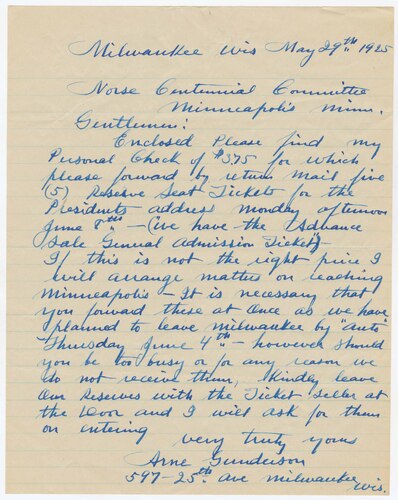 Milwaukee Wis May 29th 1925
Norse Centennial Committee
Minneapolis Minn.
Gentlemen:
Enclosed Please find my
Personal Check of $3.75 for which
please forward by return mail five
(5) Reserve Seat Tickets for the
Presidents address Monday afternoon
June 8th" - (we have the "Advance
Sale General Admission Tickets")
If this is not the right price I
will arrange matters on reaching
Minneapolis - It is necessary that
you forward these at once as we have
planned to leave Milwaukee by "auto"
Thursday June 4th - however should
you be too busy or for any reason we
do not receive them, Kindly leave
our Reserves with the Ticket Seller at
the Door and I will ask for them
on entering
very truly yours
Arne Gunderson
597 - 25th ave Milwaukee
Wis.